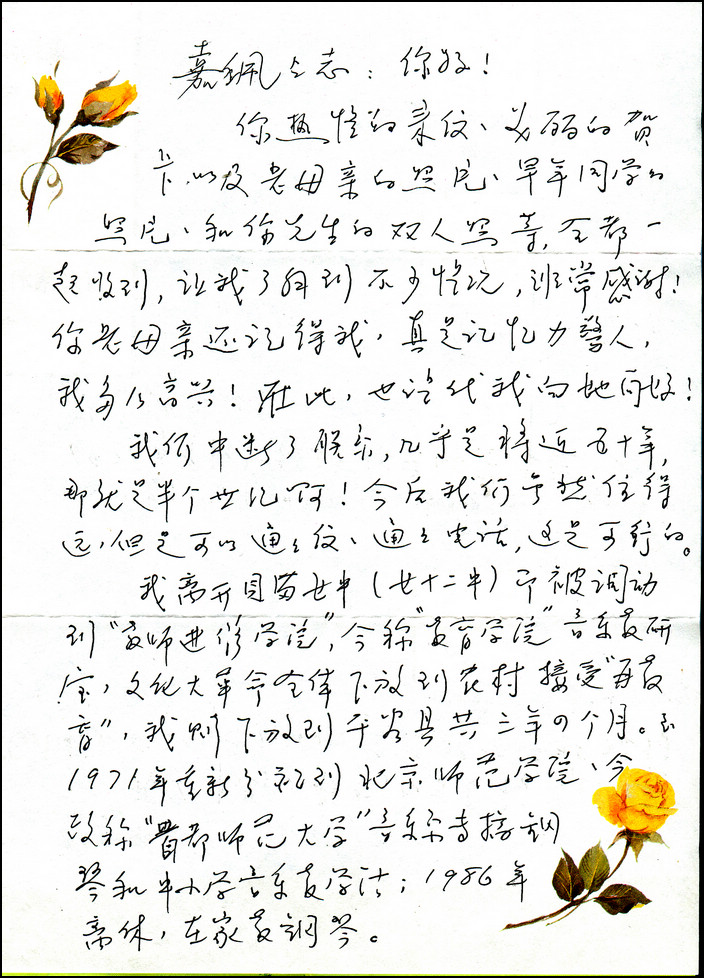 嘉珮仝志：你好！
你热情的来信、美丽的贺
卡、以及老母亲的照片、早年同学的
照片、和你先生的双人照等，全都一
起收到，让我了解到不少情况，非常感谢！
你老母亲还记得我，真是记忆力惊人，
我多么高兴！在此，也请代我向她问好！
我们中断了联系，几乎是将近五十年，
那就是半个世纪啊！今后我们虽然住得
远，但是可以通通信、通通电话，这是可行的。
我离开贝满女中（女十二中）即被调动
到“教师进修学院”，今称“教育学院”音乐教研
室，文化大革命全体下放到农村接受“再教
育”，我则下放到平谷县共三年四个月。到
1971年重新分配到北京师范学院、今
改称“首都师范大学”音乐系专接钢
琴和中小学音乐教学法；1986年
离休，在家教钢琴。